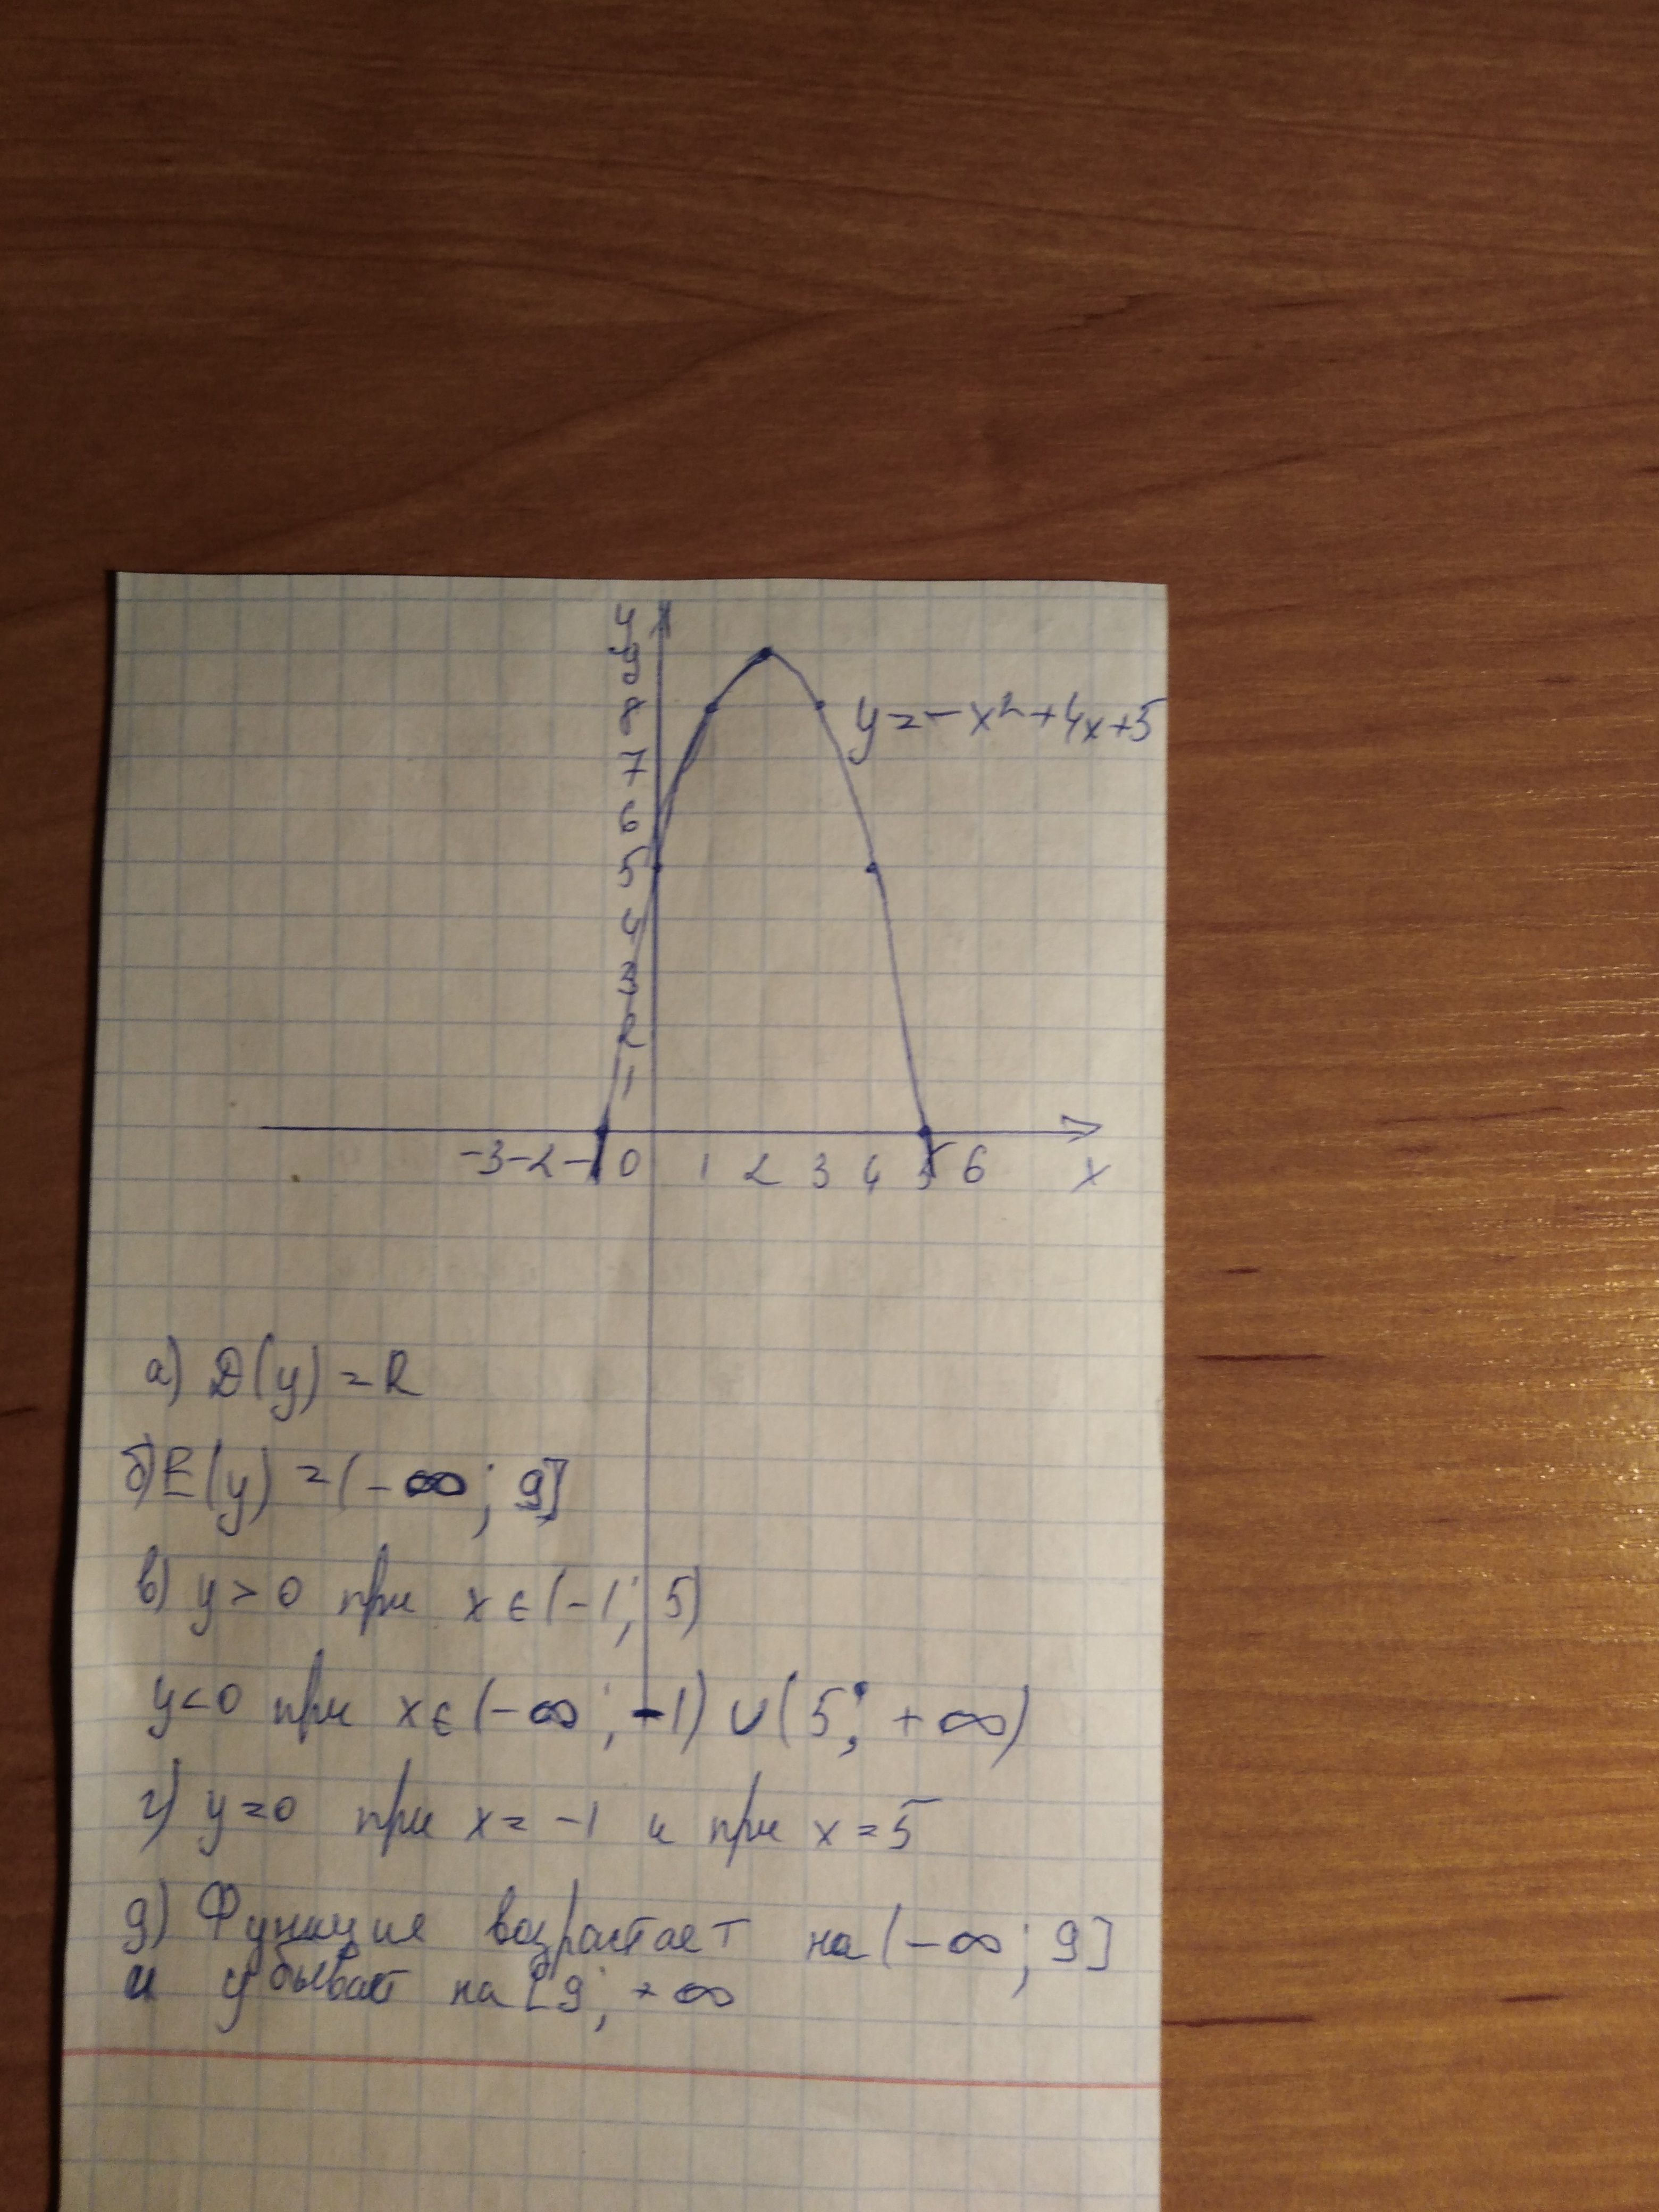 y
9
8
y=-x²+4x+5
7
6
5
4
3
2
1
-3 -2 -1 0 1 2 3 4 5 6 x
а) D(y)=R
б) E(y)=(-∞; 9]
в) y>0 при x∈(-1; 5)
y<0 при x∈(-∞; -1)∪(5; +∞)
г) y=0 при x=-1 и при x=5
д) Функция возрастает на (-∞; 9]
и убывает на [9; +∞